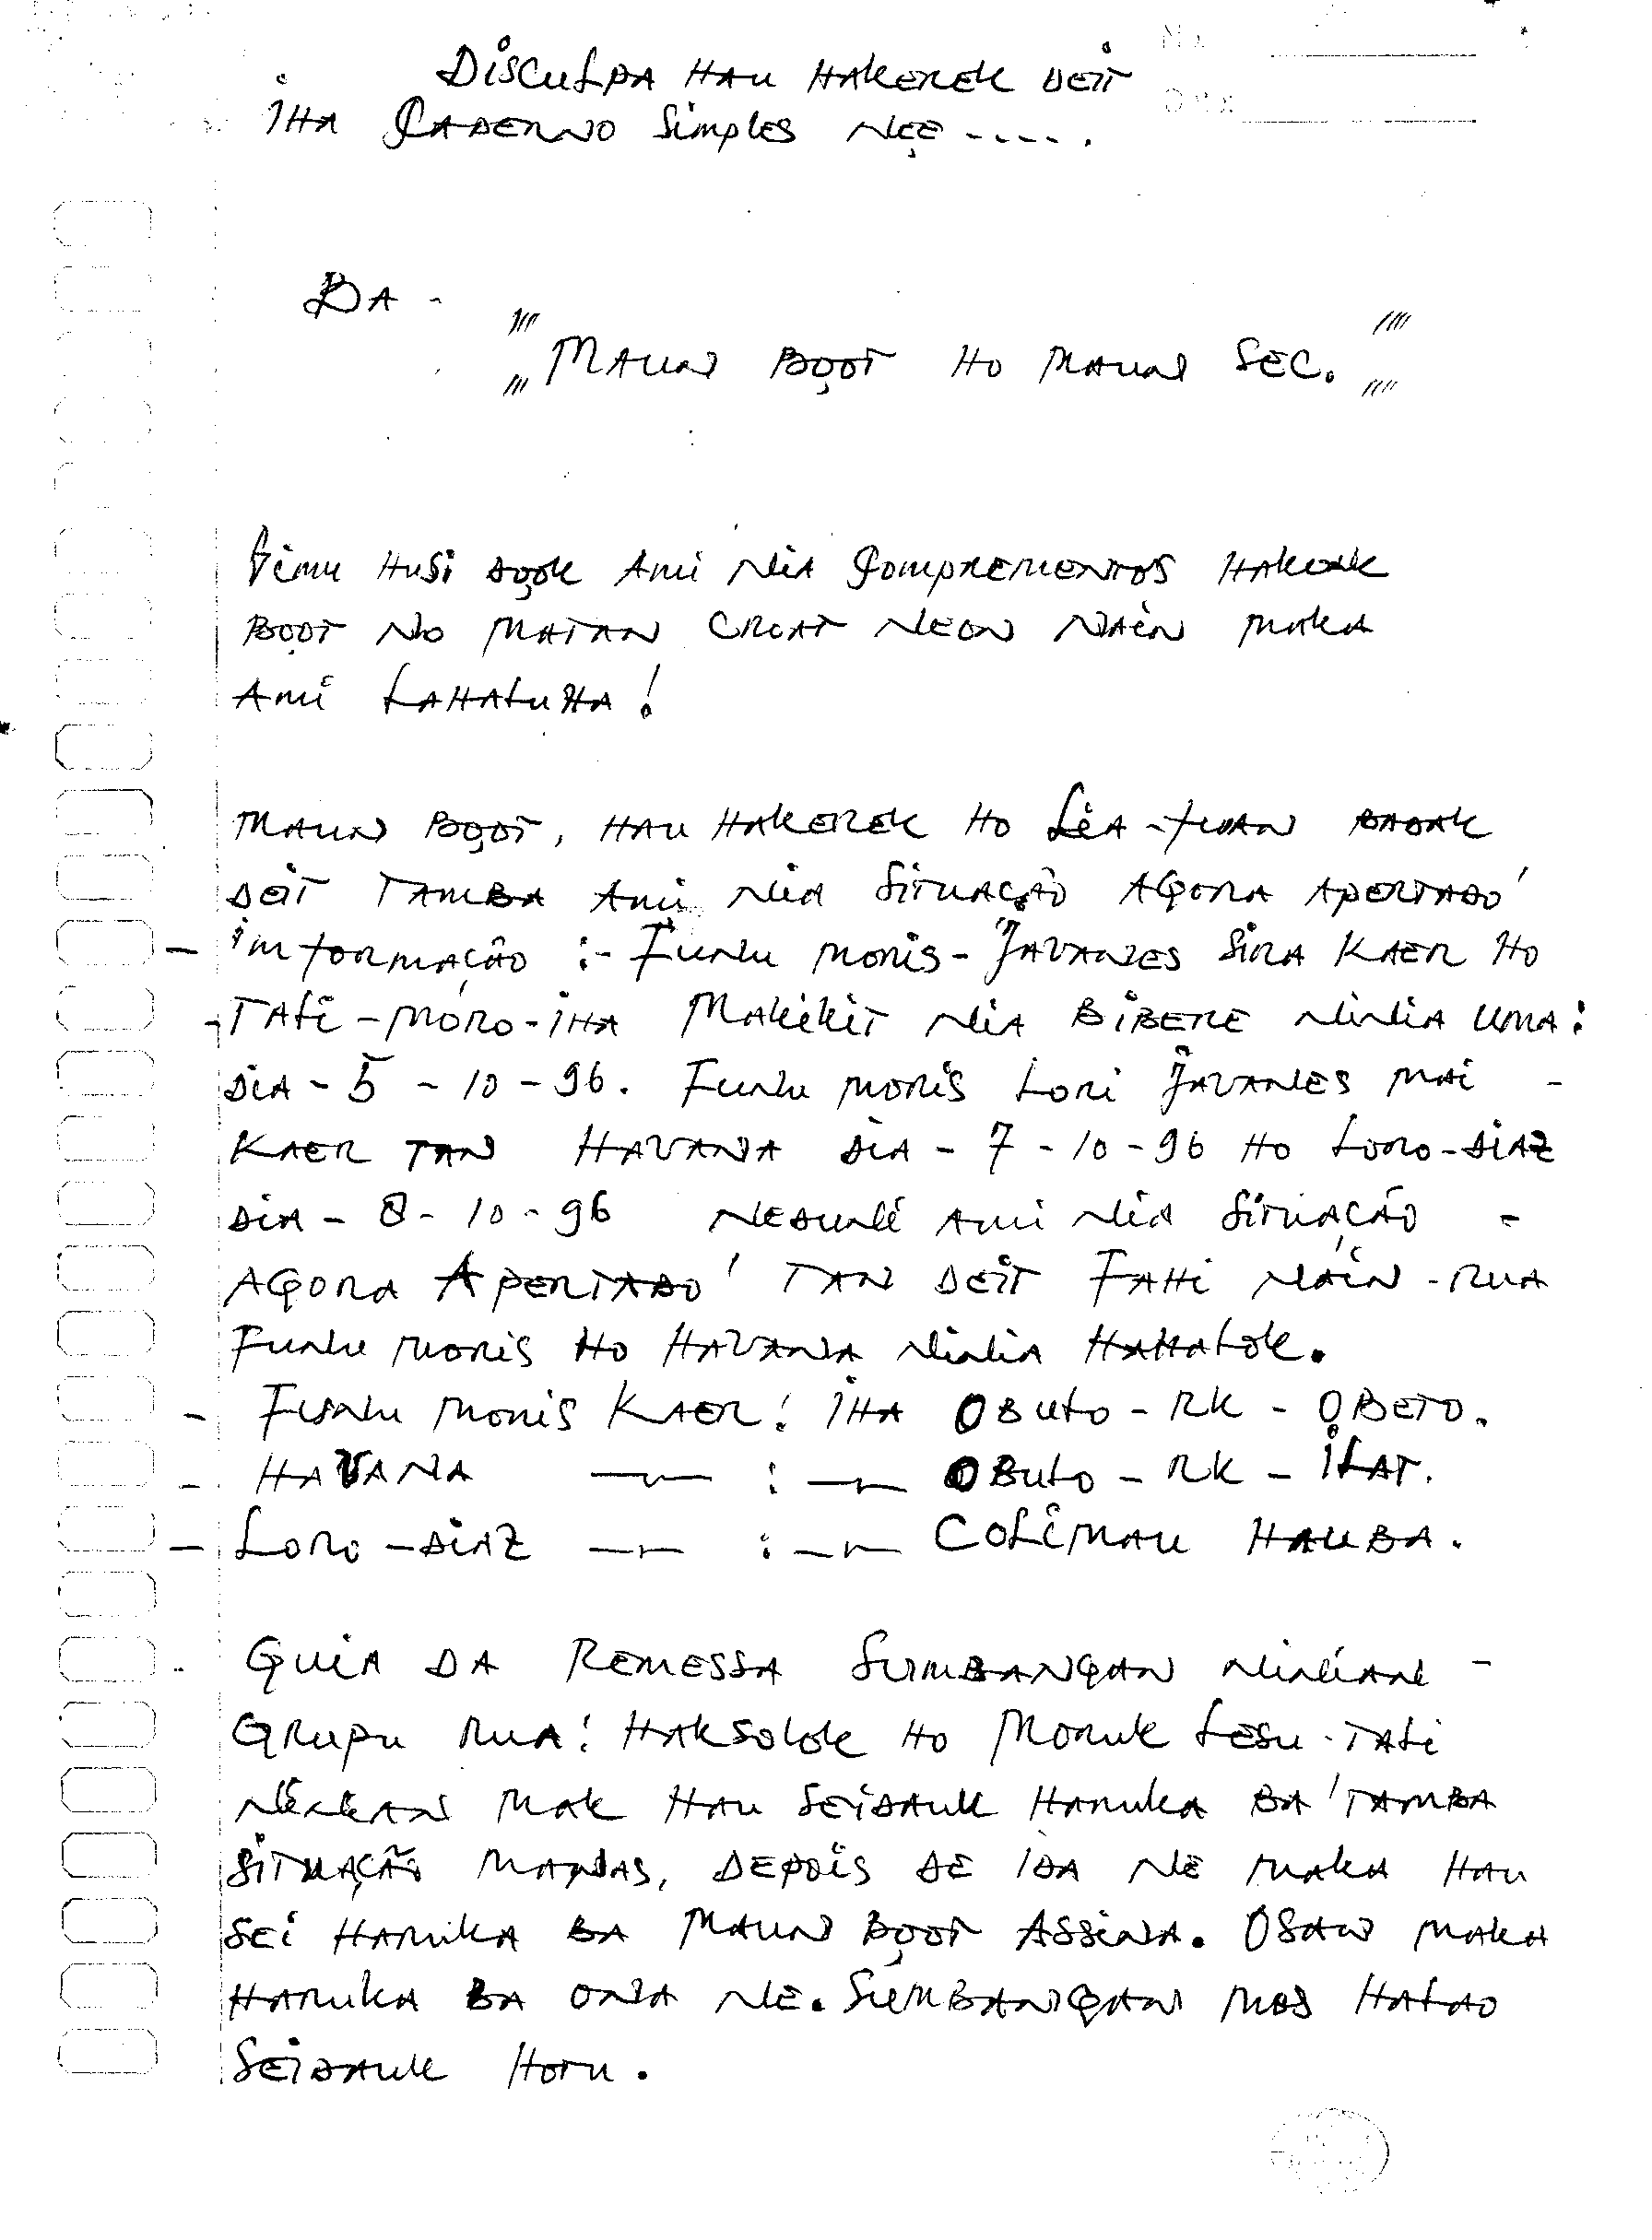 DISCULPA HAU HAKEREK DEIT
IHA CADERNO SIMPLES NEE -----.
BA -
"MAUN BOOT HO MAUN SEC."
HUSI DOOK AMI NIA COMPREMENTOS HAKOAK
BOOT NO MATAN CROAT NEON NAIN MAKA
AMI LAHALUHA!
MAUN BOOT, HAU HAKEREK HO LIA-FUAN BADAK
DEIT TAMBA AMI NIA SITUAÇÃO AGORA APERTADO
- INFORMAÇÃO :- FUNU MORIS - JAVANES SIRA KAER HO
- TALI-MORO-IHA MAKIKIT NIA BIBERE NINIA UMA:
DIA - 5 - 10 - 96. FUNU MORIS LORI JAVANES MAI -
KAER TAN HAVANA DIA - 7 - 10 - 96 HO LORO-DIAZ
DIA - 8 - 10 - 96 NEDUNI AMI NIA SITUAÇÃO -
AGORA APERTADO TAN DEIT FAHI NAIN-RUA
FUNU MORIS HO HAVANA NINIA HAHALOK.
- FUNU MORIS KAER: IHA OBULO - RK - OBETO.
- HAVANA —"— : —"— OBULO - RK - ILAT.
- LORO-DIAZ —"— : —"— COLIMAU HAUBA.
GUIA DA REMESSA SUMBANGAN NINIAN -
GRUPU RUA: HAKSOLOK HO MORUK LESU-TALI
MAK HAU SEIDAUK HARUKA BA TAMBA
SITUAÇÃO MANAS, DEPOIS DE IDA NE MAKA HAU
SEI HARUKA BA MAUN BOOT ASSINA. OSAN MAKA
HARUKA BA ONA NE. SUMBANGAN MOS HALAO
SEIDAUK HOTU.